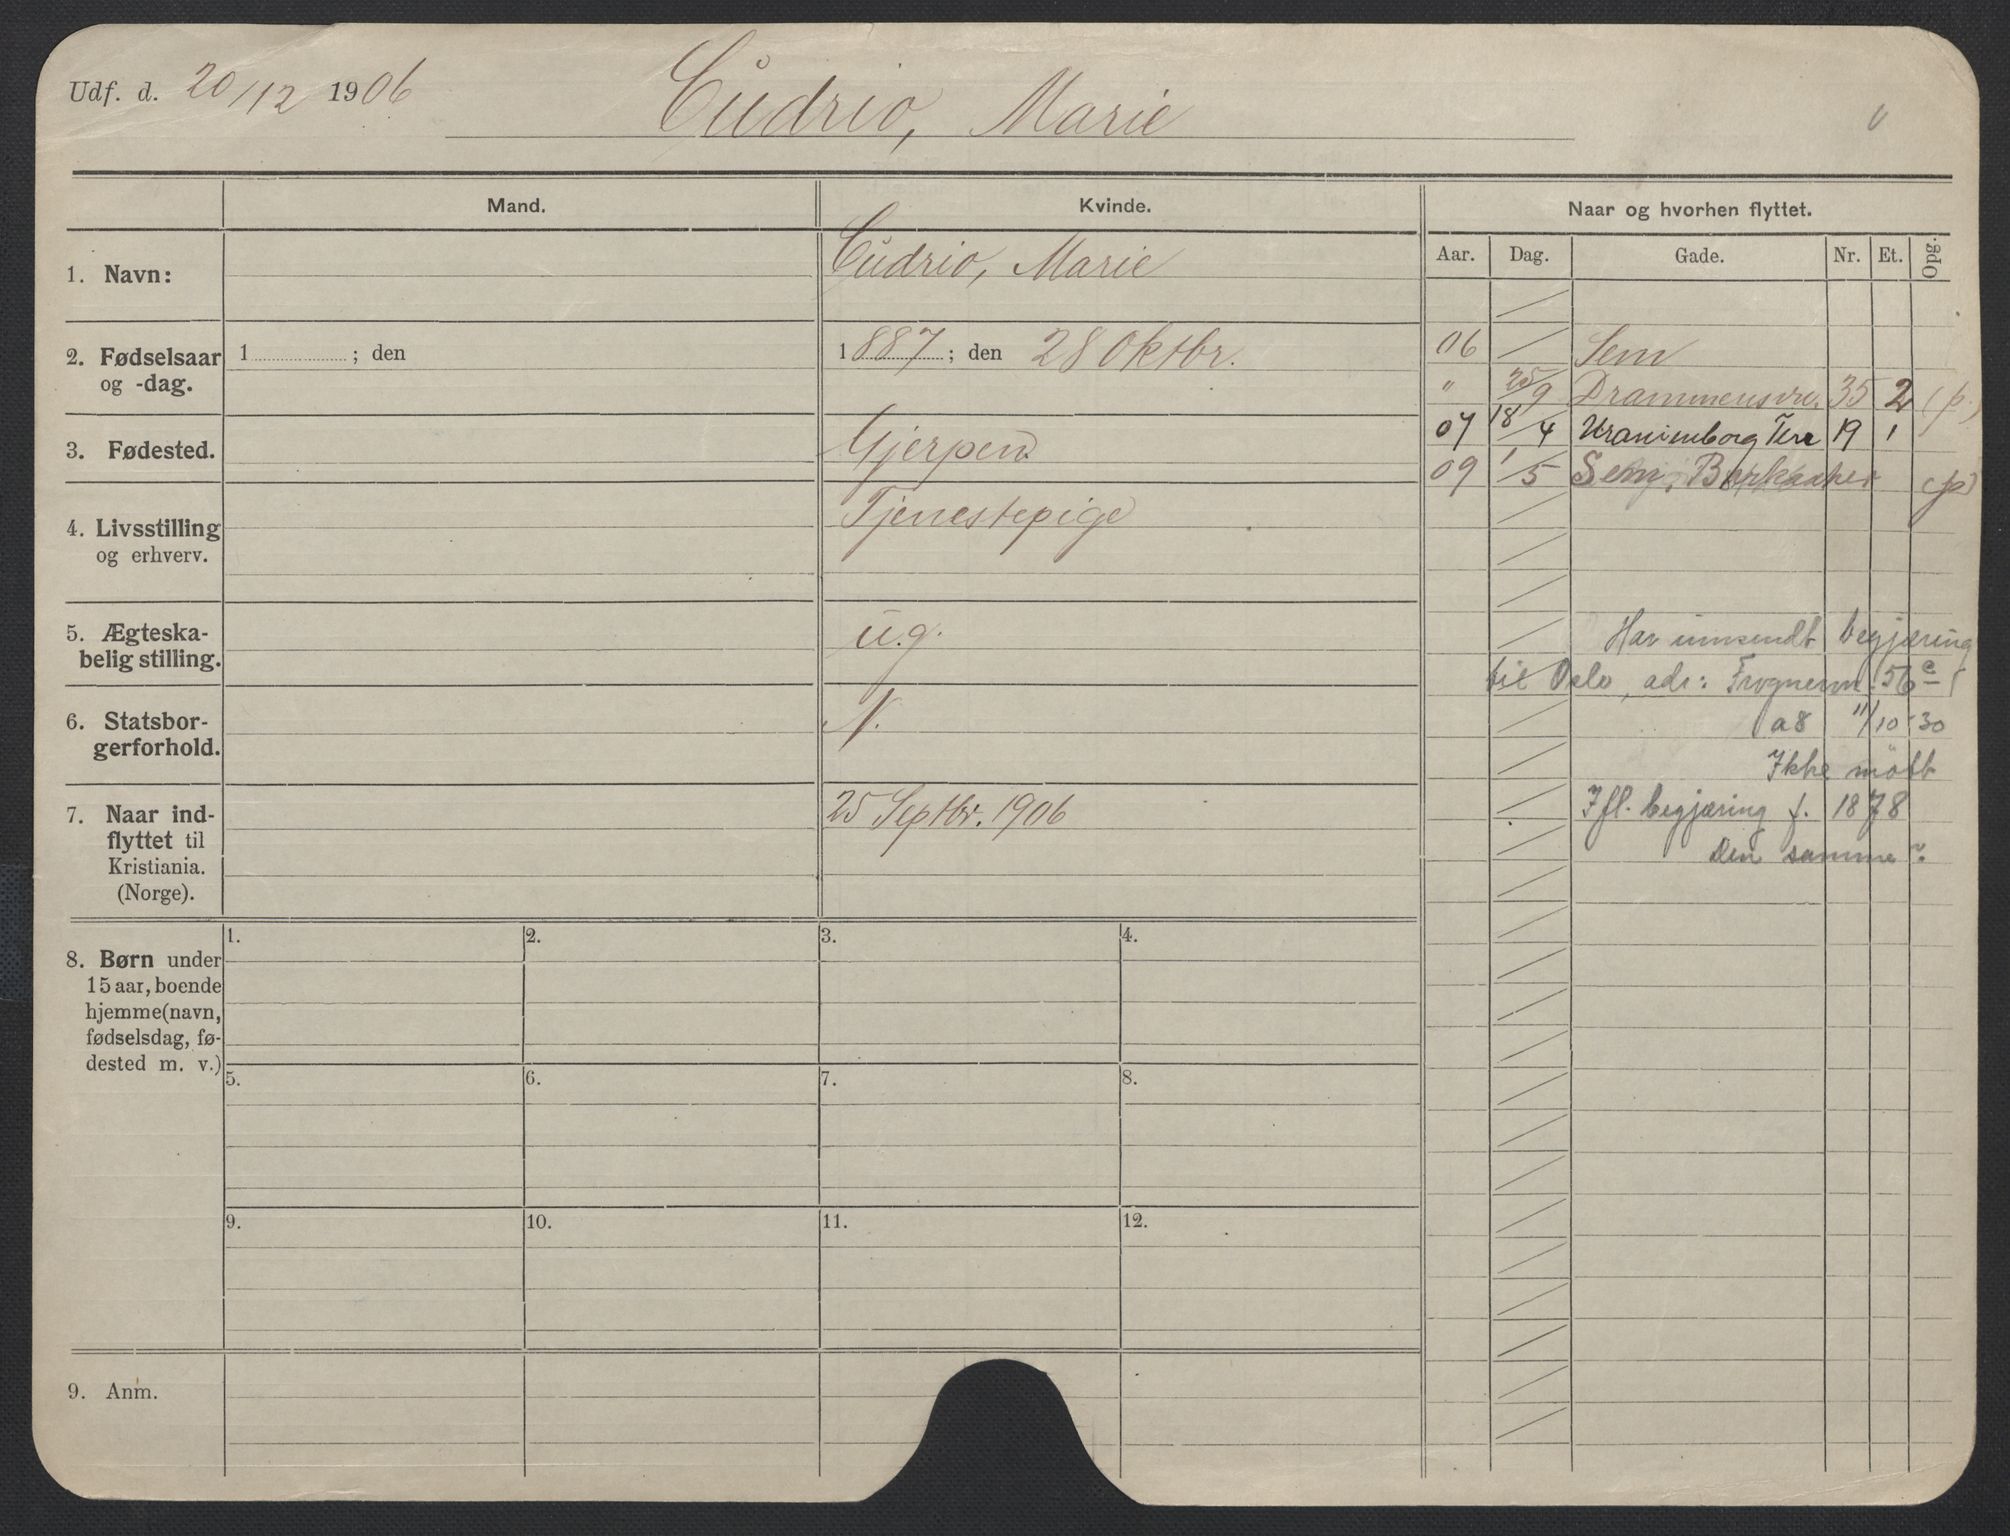 Udf. d. 20/12 1906
Cudrio, Marie
Mand.
Kvinde.
Naar og hvorhen flyttet.
Aar. Dag. Gade. Nr. Et. Opg.
1. Navn:
Cudrio, Marie
2. Fødselsaar
og -dag.
1 ; den
1887 ; den 28 Oktbr.
06 Sem
" 25/9 Drammensvn. 35 2 (p.)
07 18/4 Uranienborg Terr 19 1
09 1/5 Sem, Barkaaker (p)
3. Fødested.
Gjerpen
4. Livsstilling
og erhverv.
Tjenestepige
5. Ægteska-
belig stilling.
u.g.
Har innsendt begjæring
til Oslo, adr: Frognervn. 56 c
a8 11/10-30
Ikke møtt
Ifl. begjæring f. 1878
Den samme?
6. Statsbor-
gerforhold.
N.
7. Naar ind-
flyttet til
Kristiania.
(Norge).
25 Septbr. 1906
8. Børn under
15 aar, boende
hjemme (navn,
fødselsdag, fø-
dested m. v.)
1. 2. 3. 4.
5. 6. 7. 8.
9. 10. 11. 12.
9. Anm.